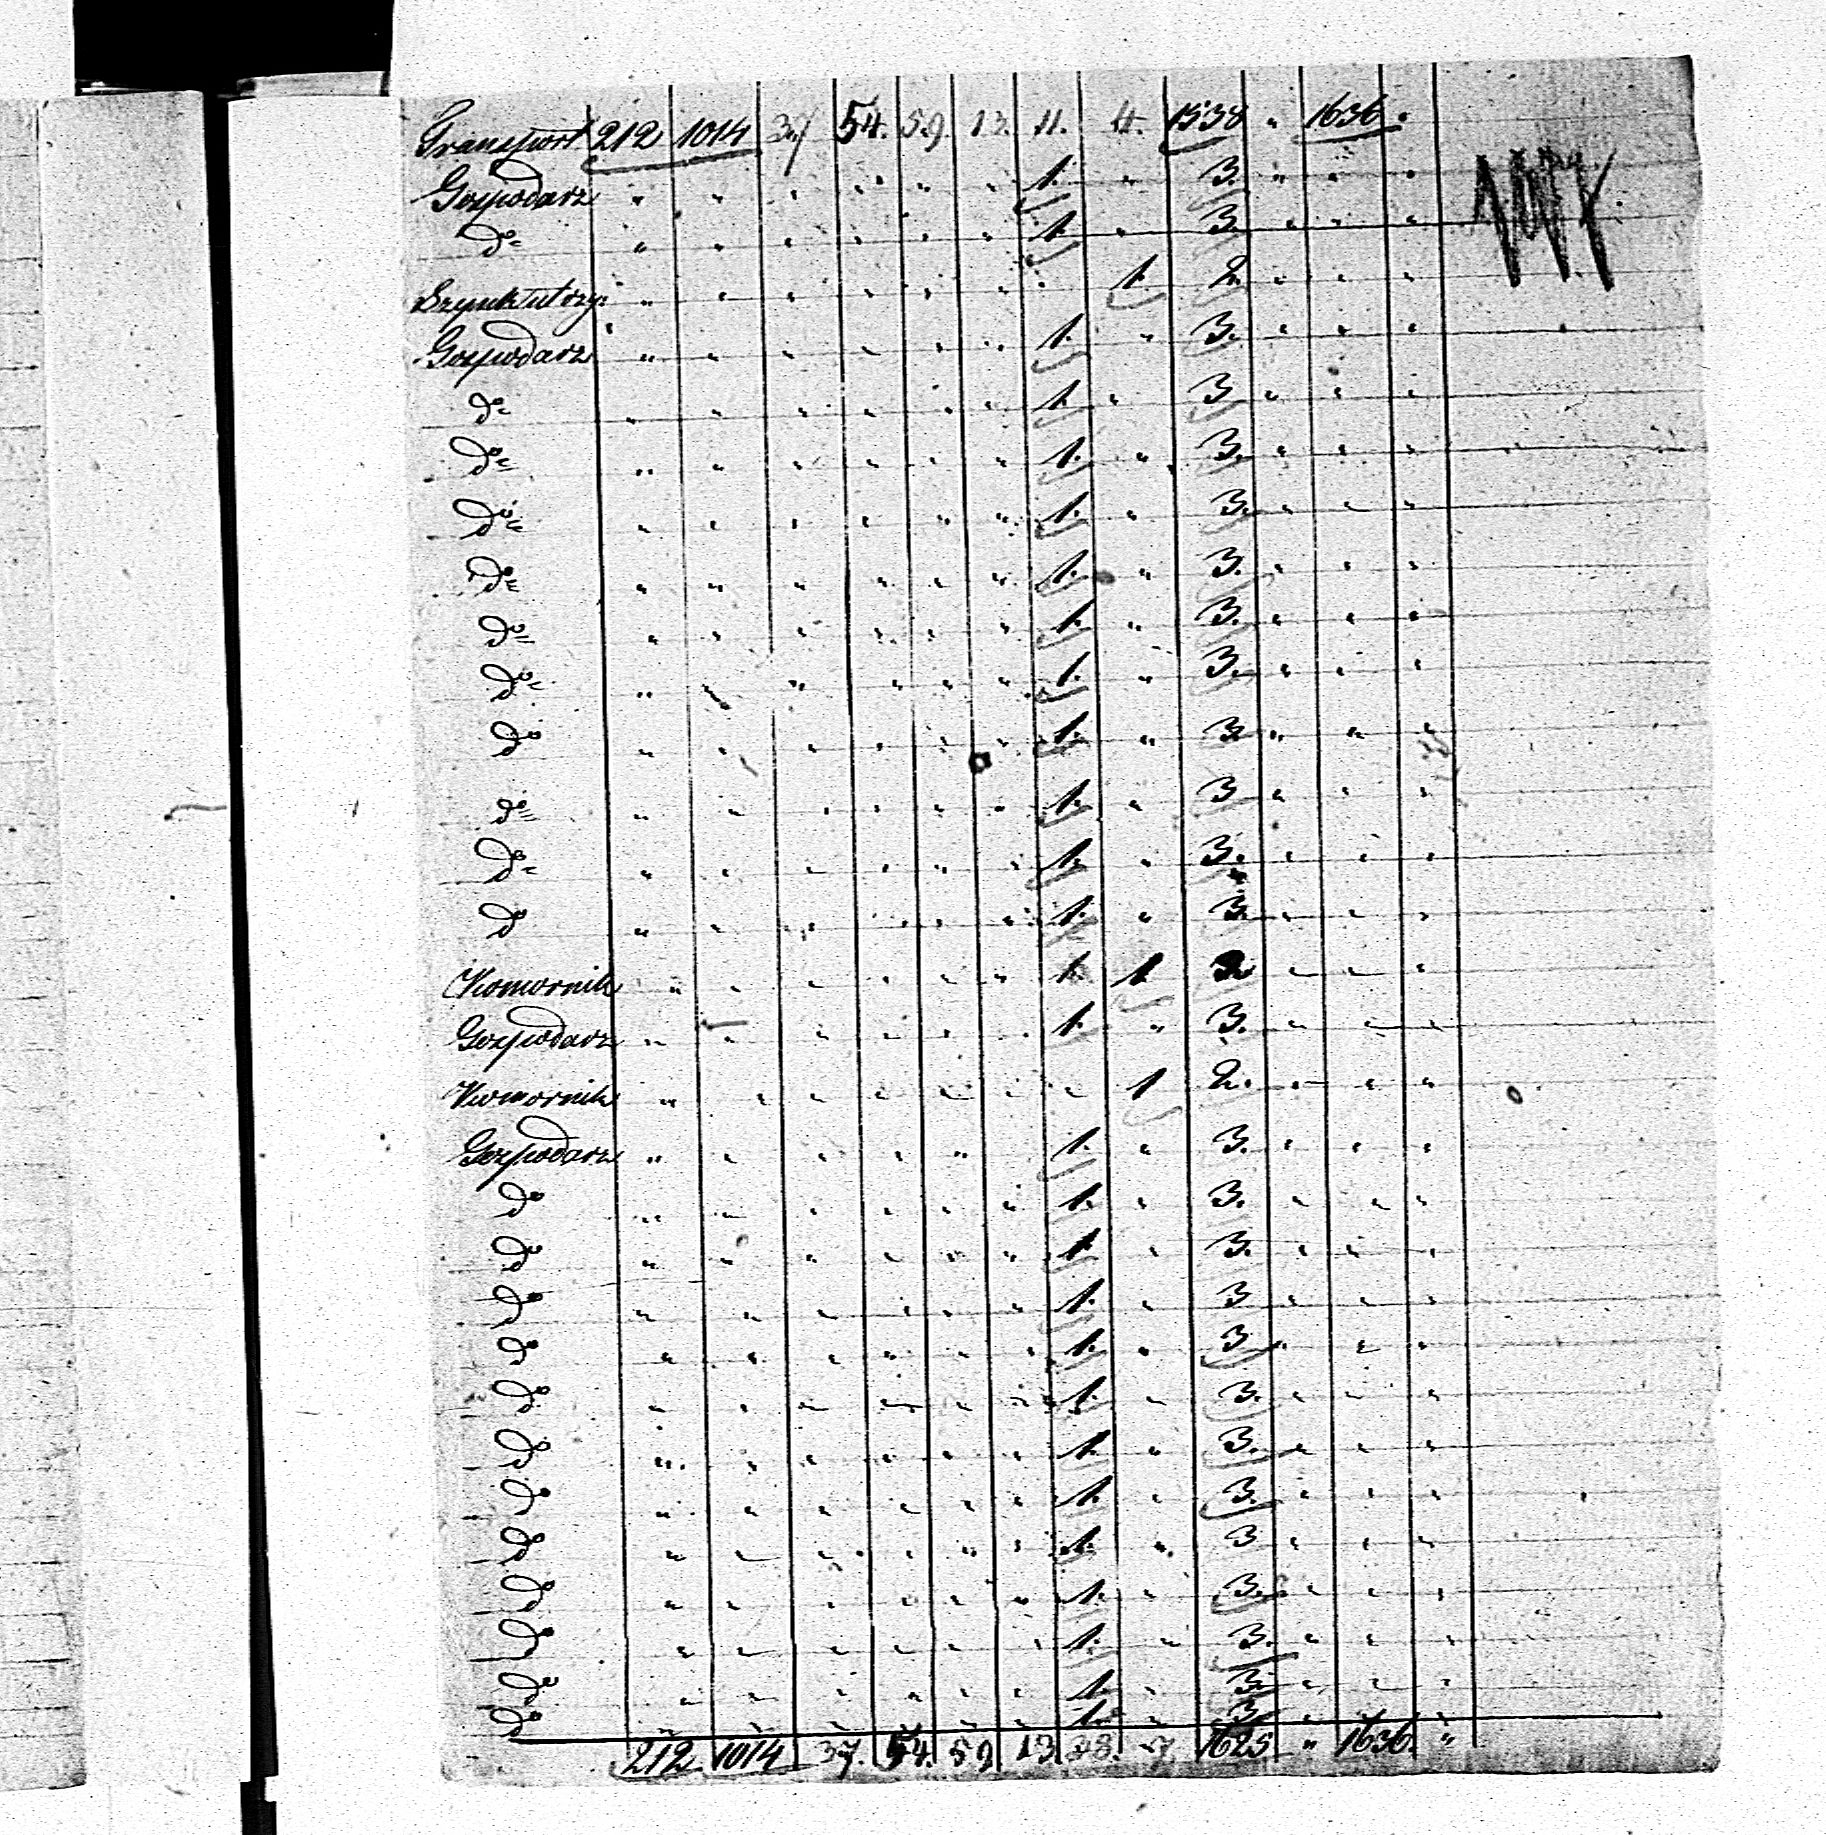 Transport 212 1014 37 54. 59. 13. 11. 4. 1538 " 1636 "
Gospodarz " " " " " " 1. " 3. " " "
do " " " " " " 1. " 3. " " "
" " " " " " " 1 2. " " "
Gospodarz " " " " " " 1. " 3. " " "
do " " " " " " 1. " 3. " " "
do " " " " " " 1. " 3. " " "
do " " " " " " 1. " 3. " " "
do " " " " " " 1. " 3. " " "
do " " " " " " 1. " 3. " " "
do " " " " " " 1. " 3. " " "
do " " " " " " 1. " 3 " " "
do " " " " " " 1. " 3 " " "
do " " " " " " 1. " 3. " " "
do " " " " " " 1. " 3. " " "
Komornik " " " " " " 1 " " "
Gospodarz " " " " " " 1. " 3. " " "
Komornik " " " " " " " 1 2. " " "
Gospodarz " " " " " " 1. " 3. " " "
do " " " " " " 1. " 3. " " "
do " " " " " " 1 " 3. " " "
do " " " " " " 1. " 3 " " "
do " " " " " " 1. " 3 " " "
do " " " " " " 1. " 3. " " "
do " " " " " " 1. " 3. " " "
do " " " " " " 1. " 3. " " "
do " " " " " " 1. " 3 " " "
do " " " " " " 1. " 3. " " "
do " " " " " " 1. " 3. " " "
do " " " " " " 1. " 3. " " "
do " " " " " " 1. " 3 " " "
212 1014 37. 54. 59 13 38. 7 1625 " 1636. "